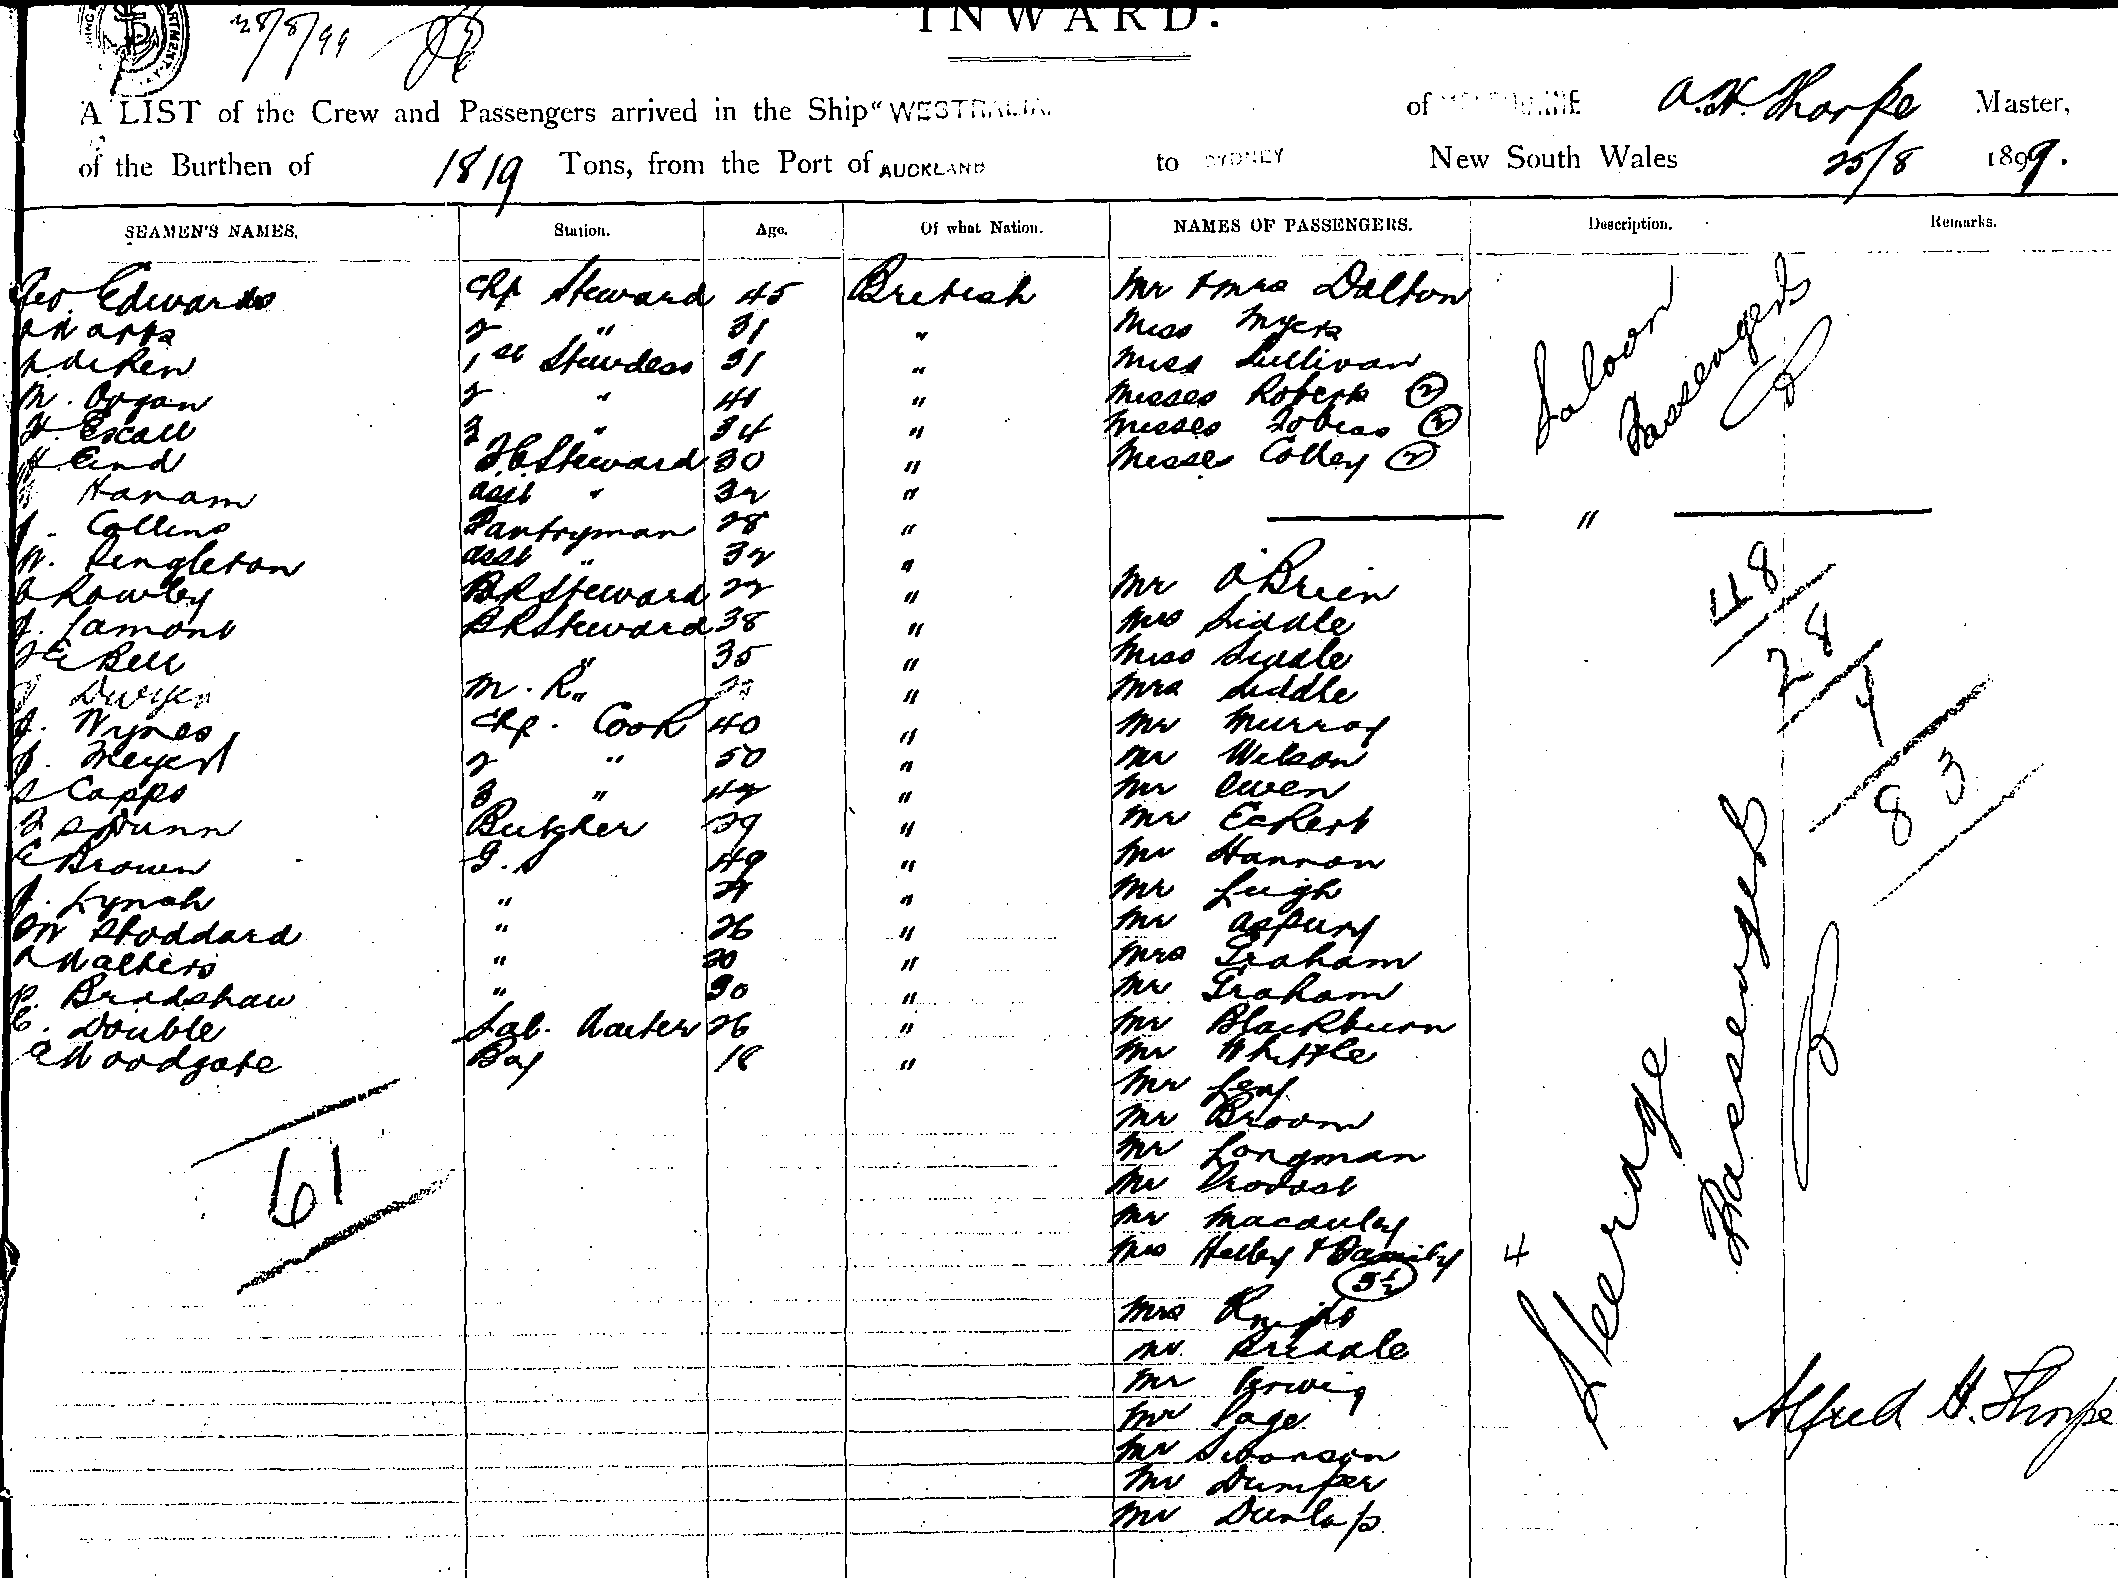 28/8/99
INWARD.
A LIST of the Crew and Passengers arrived in the Ship "WESTRALIA of MELBOURNE A.H. Thorpe Master,
of the Burthen of 1819 Tons, from the Port of AUCKLAND to SYDNEY New South Wales 25/8 1899.
SEAMEN'S NAMES. Station. Age. Of what Nation. NAMES OF PASSENGERS. Description. Remarks.
Geo Edwards Chf Steward 45 British Mr & Mrs Dalton
2 " 31 " Miss Myers
Aitken 1st Stewdess 31 " Miss Sullivan
M. Organ 2 " 41 " Misses Roberts (2)
H. Escall 3 " 34 " Misses Tobias (2)
Hind F.C. Steward 30 " Misses Colley (2)
Hanam asst " 32 "
Saloon Passengers
J. Collins Pantryman 28 " "
W. Singleton asst " 32 "
A Rowley B.R Steward 22 " Mr O'Brien
J. Lamont B R Steward 38 " Mrs Siddle
Bell " 35 " Miss Siddle
Dwyer M. R. " " Mrs Siddle
J. Wynes Chf. Cook 40 " Mr Murray
J. Meyers 2 " 50 " Mr Wilson
S Capps 3 " 42 " Mr Owen
Dunn Butcher 29 " Mr Eckert
C Brown G. S 49 " Mr Hannon
J. Lynch " 21 " Mr Leigh
W Stoddard " 26 " Mr Aspury
A Walters " 20 " Mrs Graham
P. Bradshaw " 30 " Mr Graham
C. Double Sal. Waiter 26 " Mr Blackburn
E Woodgate Boy 18 " Mr Whittle
Mr Levy
Mr Broom
61 Mr Longman
Mr Provost
Mr Macauley
Mrs Helley & Family 4
(3½)
Mrs Knight
Mr Briddle
Mr
Mr Page
Mr Swanson
Mr Dumper
Mr Dunlap
48
28
7
83
Steerage Passengers
Alfred H. Thorpe